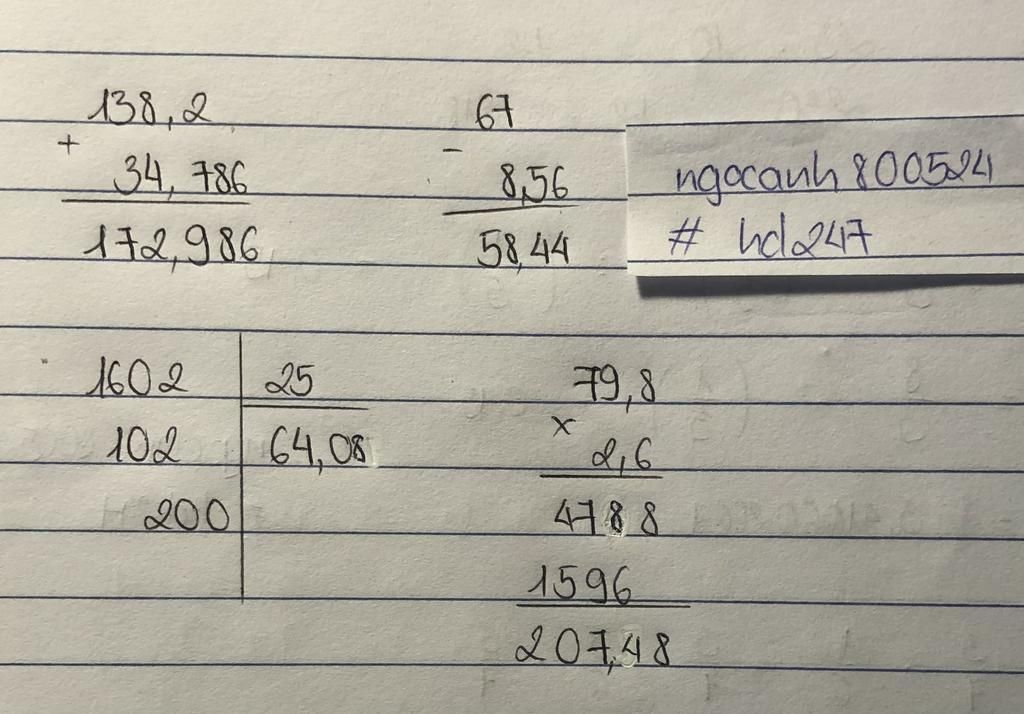 138,2
+
34,786
172,986
67
-
8,56
58,44
ngocanh800524
# hd247
1602
25
102
64,08
200
79,8
x
2,6
4788
1596
207,48